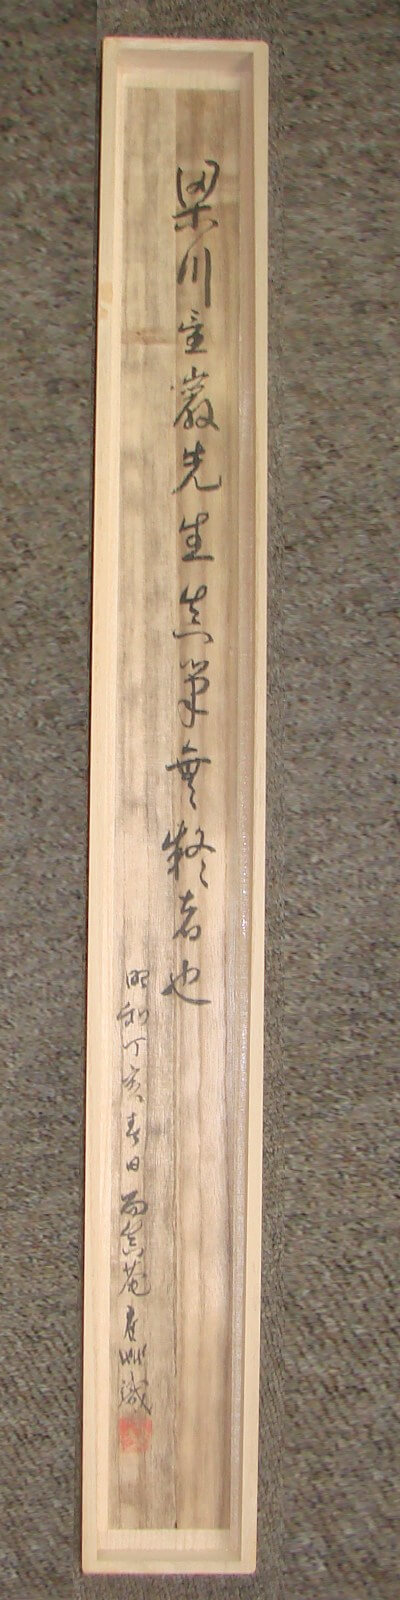 梁川星巌先生真筆無疑者也
昭和丁亥春日 雨亭菴 識